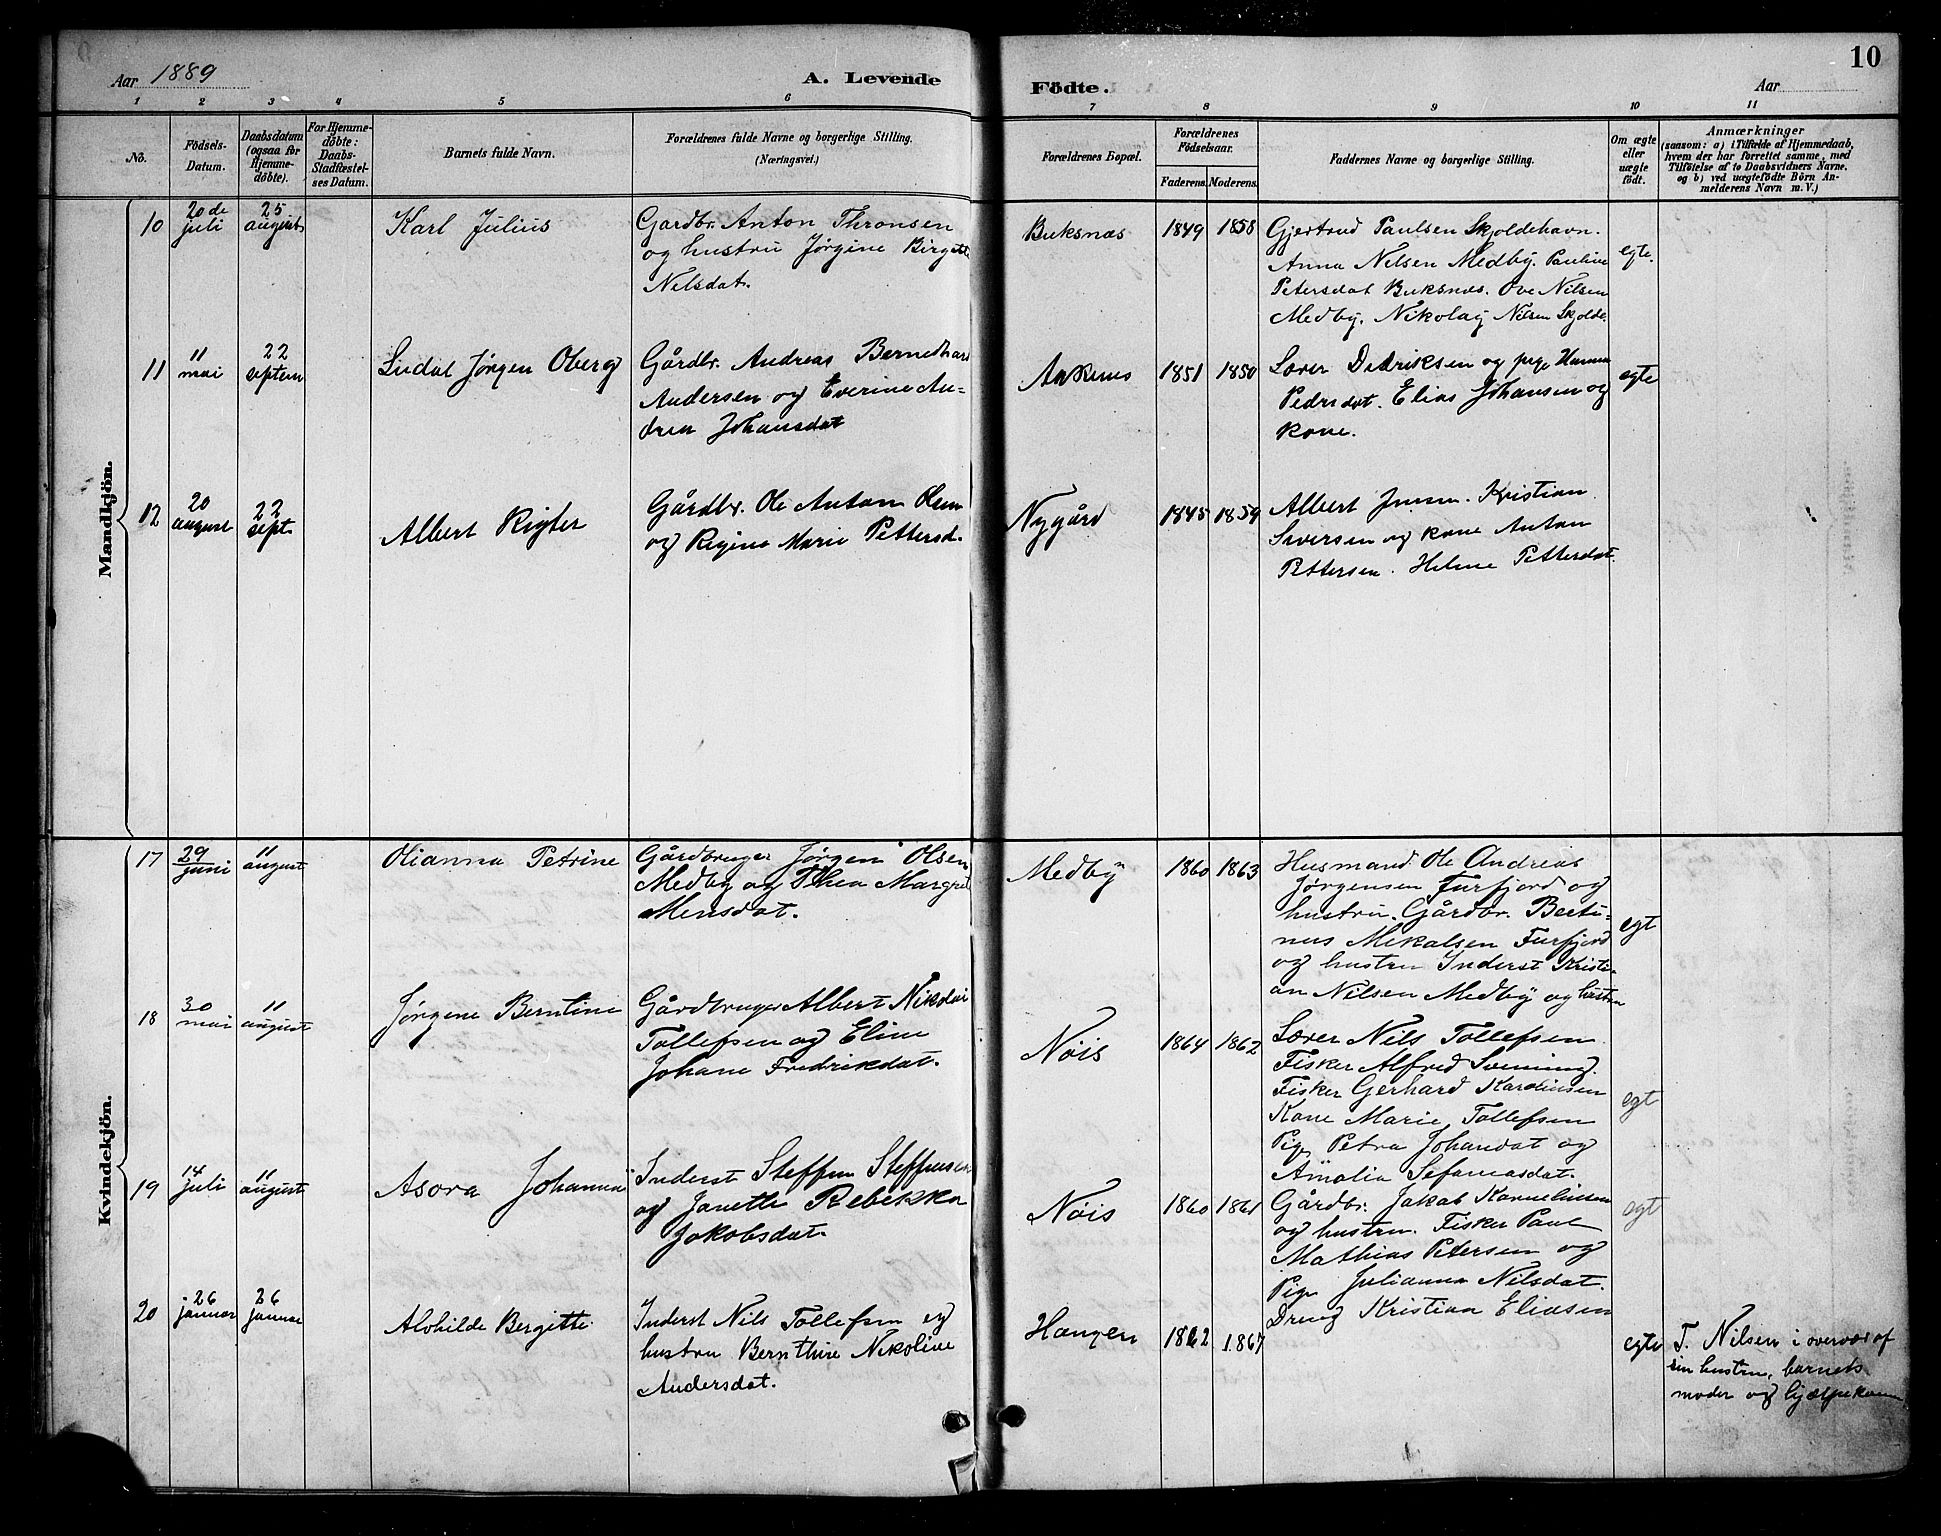 Aar 1889
A. Levende
Fødte.
Aar
10
1 2 3 4 5 6 7 8 9 10 11
No.
Fødsels-
Datum.
Daabsdatum
(ogsaa for
Hjemme-
døbte).
For Hjemme-
døbte:
Daabs-
Stadfæstel-
ses Datum.
Barnets fulde Navn.
Forældrenes fulde Navne og borgerlige Stilling.
(Næringsvei.)
Forældrenes Bopæl.
Forældrenes
Fødselsaar.
Faderens. Moderens.
Faddernes Navne og borgerlige Stilling.
Om ægte
eller
uægte
født.
Anmærkninger
(saasom: a) i Tilfælde af Hjemmedaab,
hvem der har forrettet samme, med
Tilføielse af to Daabsvidners Navne,
og b) ved uægtefødte Børn An-
melderens Navn m. V.)
Mandkjøn.
10
20de
juli
25
august
Karl Julius
Gardbr. Anton Thronsen
og hustru Jørgine Birgitte
Nilsdat.
Buksnæs
1849 1858
Gjertrud Paulsen Skjoldehavn.
Anna Nilsen Medby. Pauline
Petersdat Buksnæs. Ove Nilsen
Medby. Nikolay Nilsen Skjolde.
egte.
11
11
mai
22
septem
Jørgen Oberg
Gårdbr. Andreas Bernedhard
Andersen og Everine An-
drea Johansdat
Ankenes
1851 1850
Lærer Dedriksen og pige
Pedersdat. Elias Johansen og
kone.
egte
12
20
august
22
sept.
Albert Rigter
Gårdbr. Ole Anton Olsen
og Regine Marie Pettersd.
Nygård
1845 1859
Albert Jensen. Kristian
Siversen og kone Anton
Pettersen. Helene Petterdat.
Kvindekjøn.
17
29
juni
11
august
Olianna Petrine
Gårdbruger Jørgen Olsen
Medby og Thea Margret
Mensdat.
Medby
1860 1863
Husmand Ole Andreas
Jørgensen Furfjord og
hustru. Gårdbr. Bertu-
nus Mekalsen Furfjord
og hustru Inderst Kristi-
an Nilsen Medby og hustru
egt
18
30
mai
11
august
Jørgene Berntine
Gårdbruger Albert Nikolai
Tollefsen og Eline
Johane Fredrikdat.
Nøis
1864 1862
Lærer Nils Tollefsen
Fisker Alfred Svening.
Fisker Gerhard Karolinsen
Kone Marie Tollefsen
Pige Petra Johandat og
Amalia Sefaniasdat.
egt
19
14
juli
11
august
Asora Johanna
Inderst Steffen Steffensen
og Janette Rebekka
Jakobsdat.
Nøis
1860 1861
Gårdbr. Jakob Korneliussen
og hustru. Fisker Paul
Mathias Petersen og
Pige Julianna Nilsdat.
Dreng Kristian Eliasen
egt
20
26
januar
26
januar
Alvhilde Bergitte.
Inderst Nils Tollefsen og
hustru Bernthine Nikoline
Andersdat.
Haugen
1862 1867
egte
T. Nilsen i overvær af
sin hustru, barnets
moder og hjælpekone